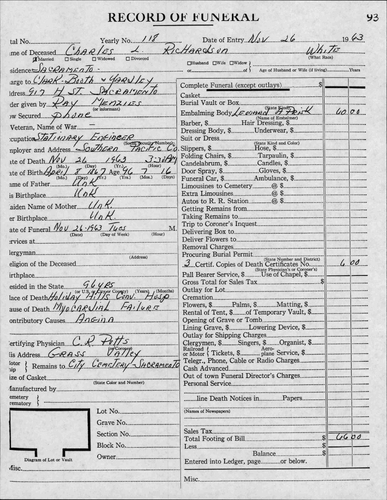 RECORD OF FUNERAL
93
tal No.
Yearly No. 118
Date of Entry Nov 26 1963
me of Deceased Charles L. Richardson White
(What Race)
Married Single Widowed Divorced
Husband Wife Widow
or
Age of Husband or Wife (if living) Years
sidence Sacramento
arge to Clark-Booth & Yardley
ddress 917 H St. Sacramento
der given by Ray Menzies
or informant)
w Secured phone
Veteran, Name of War -
cupation Stationary Engineer
ployer and Address Southern Pacific Co.
ate of Death Nov 26 1963 3:30 AM
ate of Birth April 8 1867 Age 96 7 16
me of Father Unk
is Birthplace Unk
aiden Name of Mother Unk
er Birthplace Unk
ate of Funeral Nov 26-1963 Tues M.
(Date) (Day of Week) (Hour)
rvices at
lergyman
(Address)
eligion of the Deceased
irthplace
esided in the State 96 yrs
ace of Death Holiday Hills Conv. Hosp
use of Death Myocardial Failure
ontributory Causes Angina
ertifying Physician C.R. Potts
is Address Grass Valley
Remains to City Cemetery - Sacramento
ze of Casket
(State Color and Number)
anufactured by
emetery
rematory
Lot No.
Grave No.
Section No.
Block No.
Owner
Diagram of Lot or Vault
disc.
Complete Funeral (except outlays) $
Casket
Burial Vault or Box
(State Kind)
Embalming Body 60.00
(Name of Embalmer)
Barber, $ Hair Dressing, $
Dressing Body, $ Underwear, $
Suit or Dress
(State Kind)
Slippers, $ Hose, $
Folding Chairs, $ Tarpaulin, $
Candelabrum, $ Candles, $
Door Spray, $ Gloves, $
Funeral Car, $ Ambulance, $
Limousines to Cemetery @ $
Extra Limousines @ $
Autos to R. R. Station @ $
Getting Remains from
Taking Remains to
Trip to Coroner's Inquest
Delivering Box to
Deliver Flowers to
Removal Charges
Procuring Burial Permit
(State Number and District)
3 Certif. Copies of Death Certificates No. 6.00
(State Physician's or Coroner's)
Pall Bearer Service, $ Use of Chapel, $
Gross Total for Sales Tax $
Outlay for Lot
Cremation
Flowers, $ Palms, $ Matting, $
Rental of Tent, $ of Temporary Vault, $
Opening of Grave or Tomb
Lining Grave, $ Lowering Device, $
Outlay for Shipping Charges
Clergymen, $ Singers, $ Organist, $
Railroad or Motor Tickets, $ Aeroplane Service, $
Telegr., Phone, Cable or Radio Charges
Cash Advanced
Out of town Funeral Director's Charges
Personal Service
line Death Notices in Papers
(Names of Newspapers)
Sales Tax
Total Footing of Bill $ 66.00
Less $
Balance $
Entered into Ledger, page or below.
Misc.